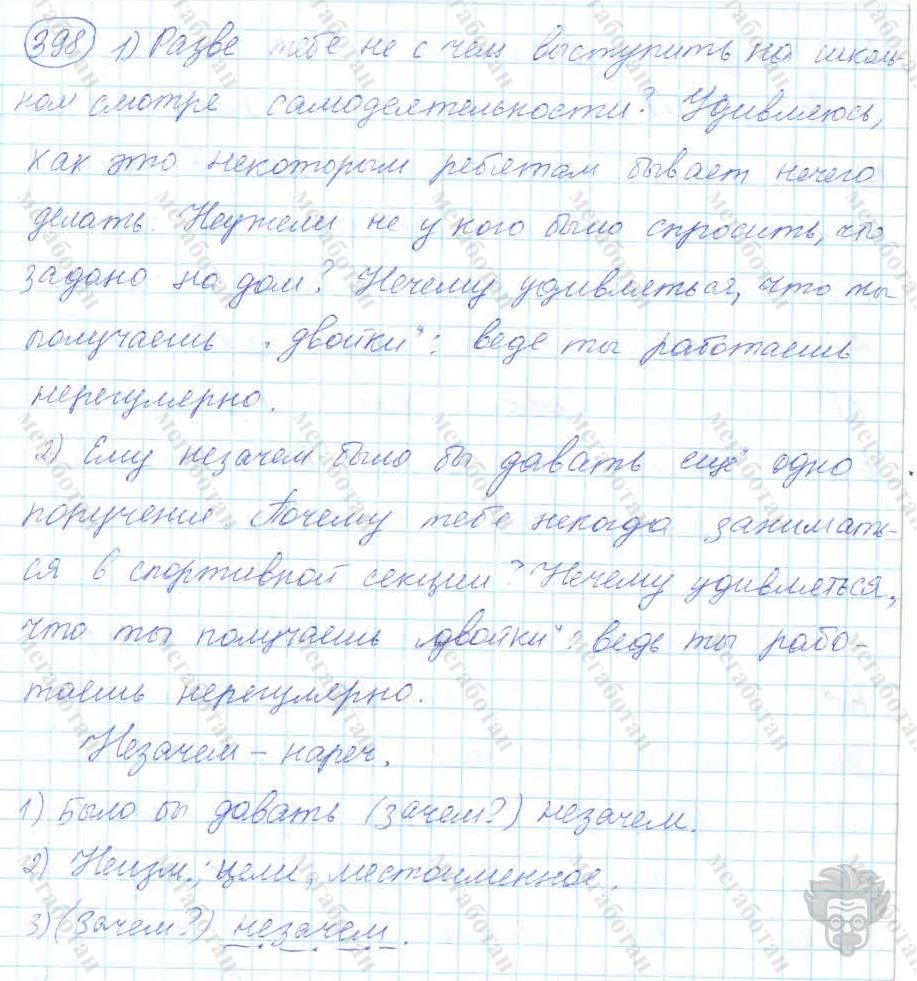 398 1) Разве тебе не с чем выступить на школь-
ном смотре самодеятельности? Удивляюсь,
как это некоторым ребятам бывает нечего
делать. Неужели не у кого было спросить, что
задано на дом? Нечему удивляться, что ты
получаешь „двойки“: ведь ты работаешь
нерегулярно.
2) Ему незачем было бы давать ещё одно
поручение. Почему тебе некогда занимать-
ся в спортивной секции? Нечему удивляться,
что ты получаешь „двойки“: ведь ты рабо-
таешь нерегулярно.
Незачем – нареч.
1) Было бы давать (зачем?) незачем.
2) Неизм.; цели, местоименное.
3) (Зачем?) незачем.
мегаботан